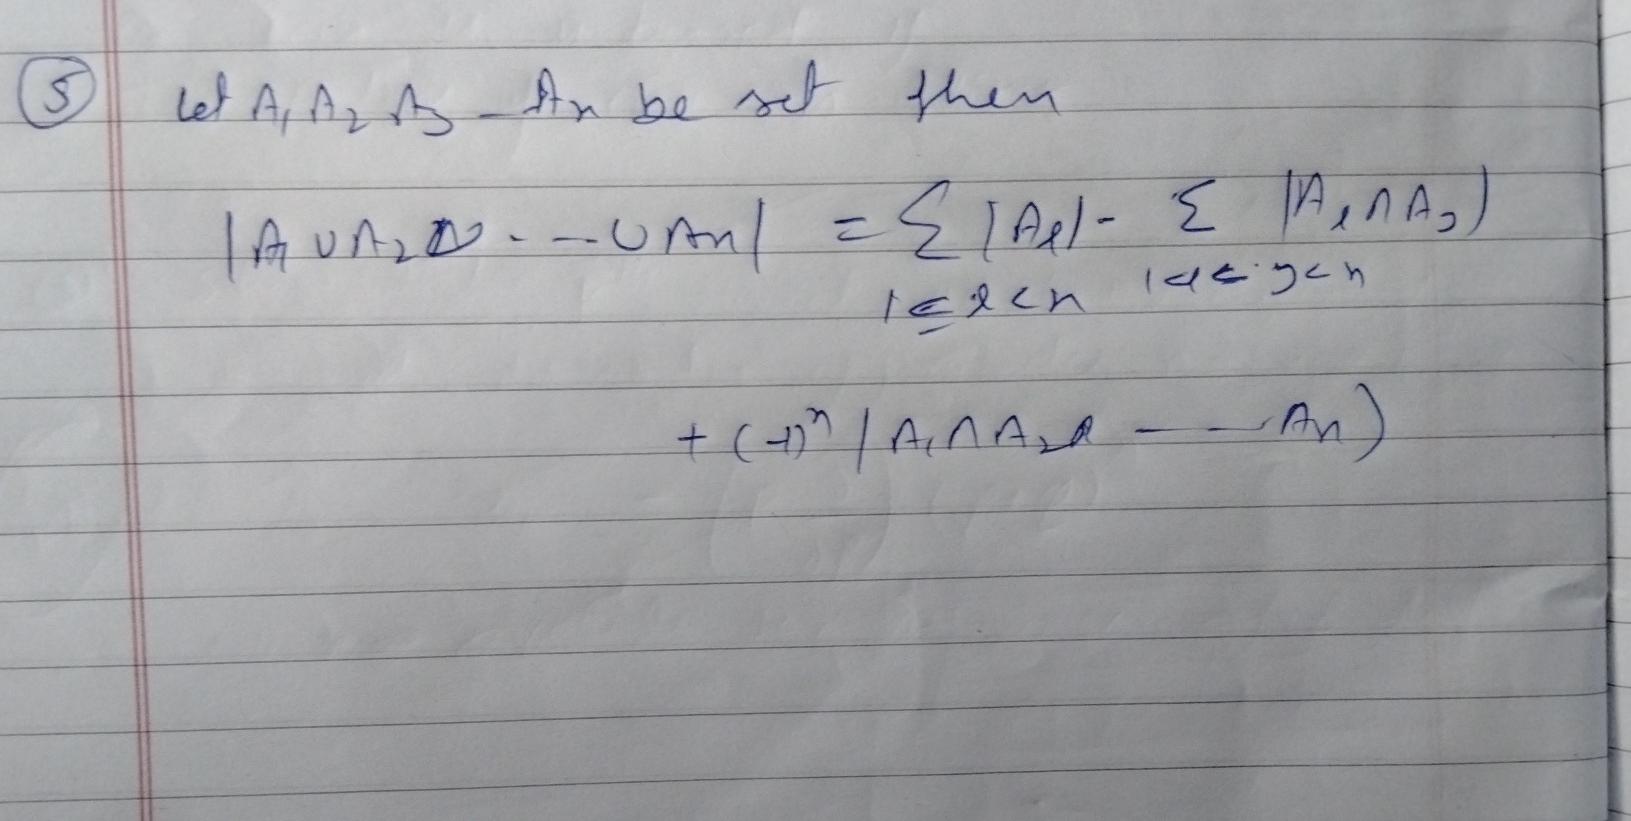 5 Let A₁ A₂ A₃ - An be set then
|A₁ ∪ A₂ ∪ - -- ∪ An| = Σ |Ai| - Σ |Ai ∩ Aj|
1 ≤ i < n 1 < i < j < n
+ (-1)ⁿ | A₁ ∩ A₂ -- -- An)